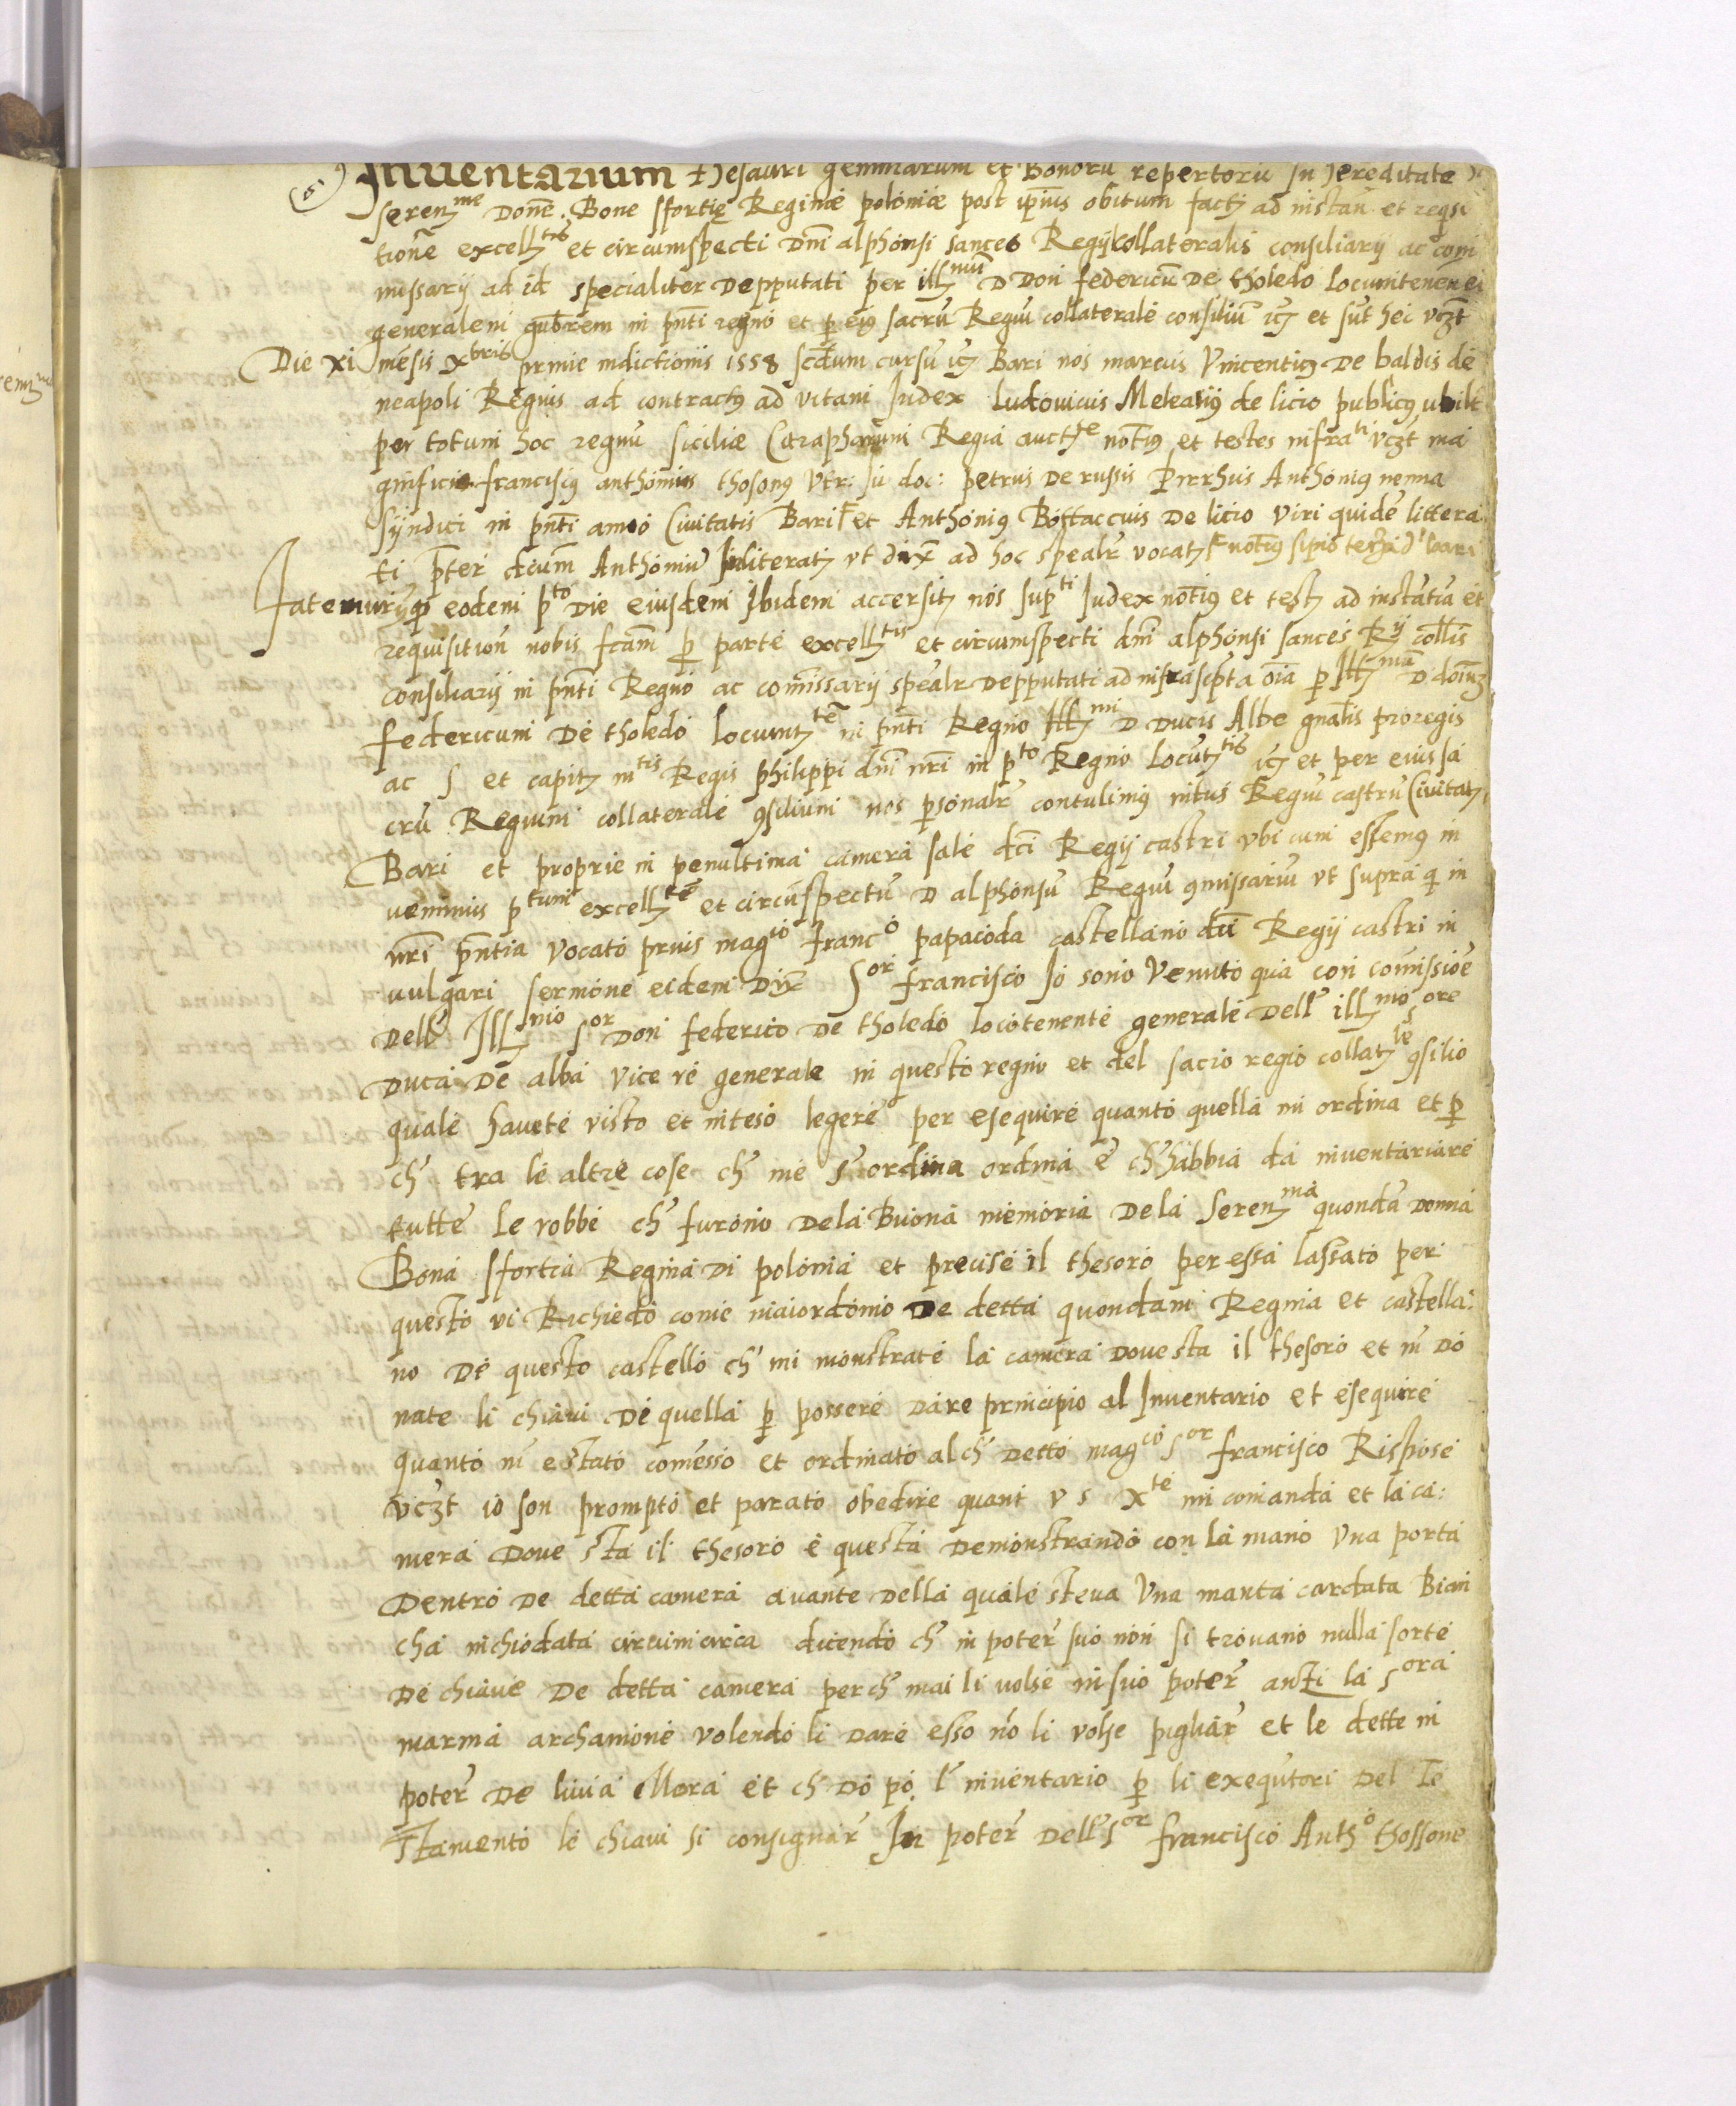 Inventarium thesauri gemmarum et Bonorū repertorū in hereditate
seren^me Donē Bone sfortię Reginæ poloniæ post ipīus obitum fact ad instan̄ et reqsi
tionē excell^tis et circumspecti Dnī alphonsi sances Regij collateralis consiliarij ac com
missarij ad id specialiter Depputati per ill^mū D Don federicū De tholedo Locumtenen
generalem gubrem in pn̄ti regno et p eiꝰ sacrū Regiū collaterale consiliū et sūt hec vczt
Die xi mēsis X^bris prime indictionis 1558 scdum cursū Bari nos marcus Vincentiꝰ De baldis de
neapoli Regius ad contractꝰ ad vitam Iudex Ludovicus Meleatiꝰ de licio publicꝰ ubilt
per totum hoc regnū siciliæ Citrapharum Regia auct^te not̄iꝰ et testes infra^ti vczt ma
gnificis franciscꝰ anthonius thosonꝰ Vtr: Iu doc: petrus De russis Pirrhus Anthoniꝰ nenna
sijndici in pn̄ti anno Civitatis Bari et Anthoniꝰ Bottaccuis De licio Viri quidē littera
ti pter dcum̄ Anthoniū Iniliterat ut dix̄ ad hoc spealr vocat
fatemur qp eodem p^to Die eiusdem Ibidem accersit nos sup^ti Iudex not̄iꝰ et test ad instātia et
requisitioñ nobis fcam̄ p parte excell^tis et circumspecti dnī alphonsi sances R^ij collis
consiliarij in pn̄ti Regno ac comissarij spealr Depputati ad infrascpta oīa p Ill^mū D doinū
federicum De tholedo locumt^tē in pn̄ti Regno Ill^mi D Ducis Albe gnalis proregis
ac S et capit m^tis Regis philippi dnī nrī in p^to Regno Locūt^tis et per eius sa
crū Regium collaterale ꝯsilium nos psonalr contulimꝰ intus Regiū castrū Civitat
Bari et proprie in penultima camera sale dcī Regij castri vbi cum essemꝰ in
venimus p^tum excell^tē et circūspectū D alphonsū Regiū ꝯmissariū vt supra q in
nrī pn̄tia vocato prius mag^co franc^o papacoda castellano dcī Regij castri in
vulgari sermone eidem Dix̄ S^or francisco Io sono Venuto qua con comissioē
Dell Ill^mo S^or Don federico De tholedo locotenente generale Dell ill^mo s^ore
Duca De alba vice re generale in questo regno et del sacro regio collat^le ꝯsilio
quale havete visto et inteso legere per esequire quanto quella mi ordina et p
ch tra le altre cose ch me s ordina ordina e ch habbia da inventariare
tutte le robbe ch furono Dela Buona memoria Dela Seren^ma quondā Donna
Bona sfortia Regina Di polonia et precise il thesoro per essa lassato per
questo vi Richiedo come maiordomo De detta quondam Regina et castella:
no De questo castello ch mi monstrate la camera Dove sta il thesoro et m Do
nate li chiavi De quella p possere Dare principio al Inventario et esequire
quanto m e stato comesso et ordinato al ch detto mag^co s^or francisco Rispose
vczt io son prompto et parato obedire quant v s X^te mi comanda et la ca:
mera Dove sta il thesoro e questa Demonstrando con la mano Vna porta
Dentro De detta camera avante Della quale steva Vna manta cardata Bian
cha inchiodata circumcirca dicendo ch in poter suo non si trovano nulla sorte
De chiave De detta camera perch mai li volse in suo poter anti la s^ora
marma archamone volendo li Dare esso nō li volse pigliar et le dette in
poter De livia Mora et ch Do po l inventario p li exequtori Del Te
stamento le chiavi si consignar In poter Dell s^or francisco Anth^o thossone